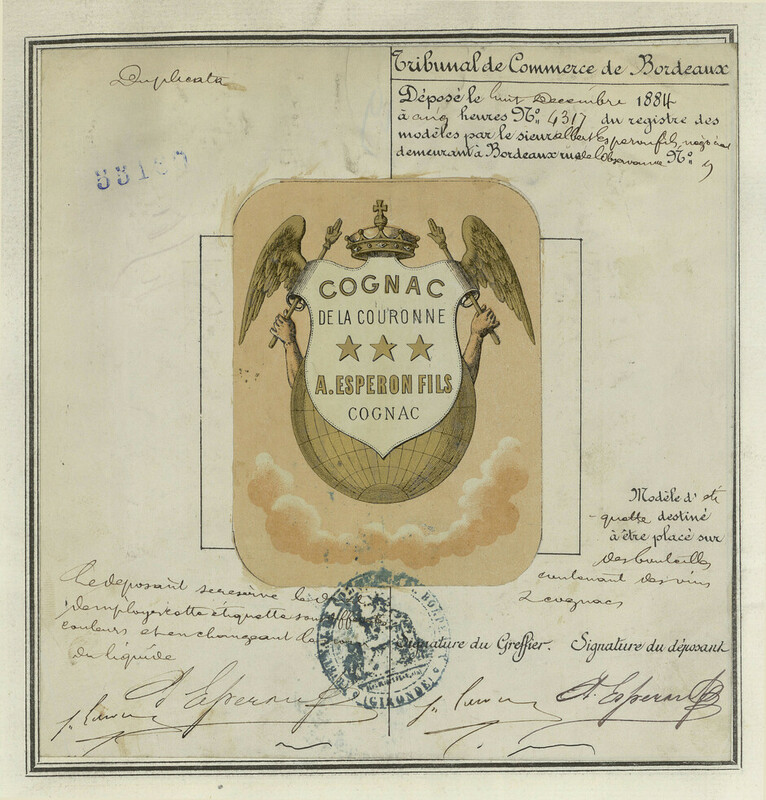 Duplicata
Tribunal de Commerce de Bordeaux
Déposé le huit Décembre 1884
à cinq heures No. 4317 du registre des
modèles par le sieur Albert Esperon fils, négociant
demeurant à Bordeaux rue de l'Observance No. 9
COGNAC
DE LA COURONNE
A. ESPERON FILS
COGNAC
Modèle d'éti
-quette destiné
à être placé sur
des bouteilles
contenant des vins
& cognacs
Le déposant se réserve le
d'employer cette étiquette sous
couleurs et en changeant la
du liquide
Signature du Greffier. Signature du déposant
A. Esperon f
A. Esperon
TRIBUNAL DE COMMERCE DE BORDEAUX
(GIRONDE)